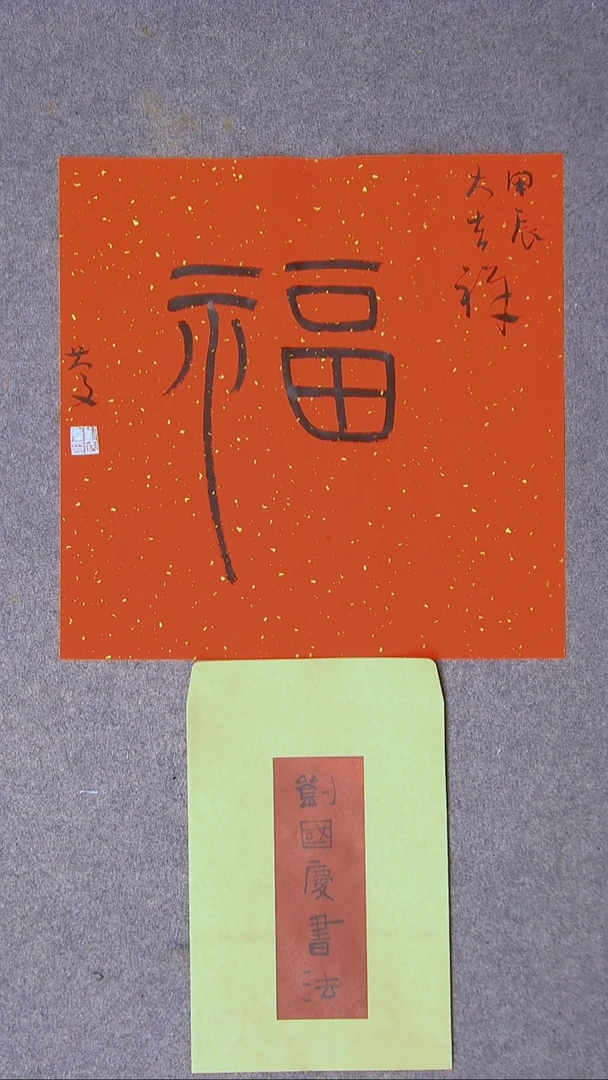 甲辰
大吉祥
福
劉國慶書法